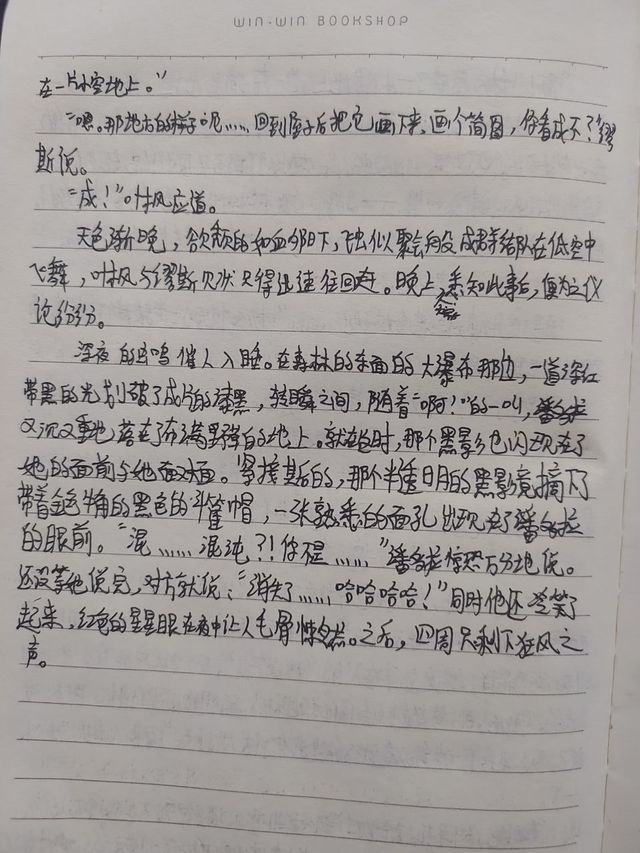 WIN·WIN BOOKSHOP
在一片小空地上。”
“嗯。那地方的样子呢……回到屋子后把它画下来、画个简图，你看成不？”缪
斯说。
“成！”叶枫应道。
天色渐晚，欲颓的如血夕阳下，飞虫似聚会般成群结队在低空中
飞舞，叶枫与缪斯见状只得迅速往回赶。晚上，悉知此事后，便为之议
论纷纷。
深夜的鸣催人入睡。在森林的东面的大瀑布那边，一道深红
带黑的光划破了成片的漆黑，转瞬之间，随着“啊！”的一叫，潘多拉
又沉又重地落在了布满野草的地上。就在此时，那个黑影也闪现在了
她的面前与她面对面。紧接其后的，那个半透明的黑影竟摘下了
带着金色牛角的黑色的斗篷帽，一张熟悉的面孔出现在了潘多拉
的眼前。“混……混沌？！你不是……”潘多拉惊恐万分地说。
还没等她说完，对方就说：“消失了……哈哈哈哈！”同时他还笑了
起来，红色的星星眼在夜中让人毛骨悚然。之后，四周只剩下狂风之
声。